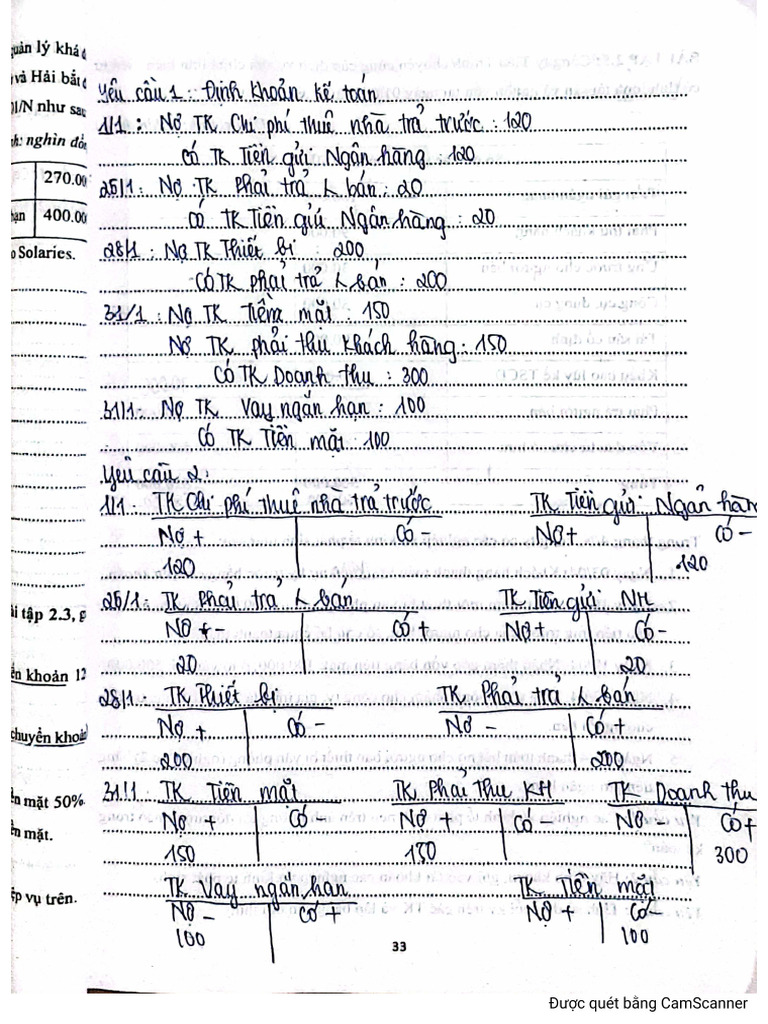 quản lý khá
và Hải bắt
01/N như sau
h: nghìn đồ
270.00
ạn 400.00
o Solaries.
ài tập 2.3, g
ển khoản 12
chuyển khoả
ền mặt 50%.
ền mặt.
ệp vụ trên.
Yêu cầu 1: Định khoản kế toán
1/1: Nợ TK Chi phí thuê nhà trả trước: 120
có TK Tiền gửi Ngân hàng: 120
25/1: Nợ TK Phải trả K bán: 20
có TK Tiền gửi Ngân hàng: 20
28/1: Nợ TK Thiết bị: 200
CóTK phải trả K bán: 200
31/1: Nợ TK Tiền mặt: 150
Nợ TK phải thu khách hàng: 150
Có TK Doanh thu: 300
31/1: Nợ TK Vay ngắn hạn: 100
Có TK Tiền mặt: 100
Yêu cầu 2:
1/1 TK Chi phí thuê nhà trả trước TK Tiền gửi Ngân hàng
Nợ + Có - Nợ + Có -
120 120
25/1: TK Phải trả K bán TK Tiền gửi NH
Nợ - Có + Nợ + Có -
20 20
28/1: TK Thiết bị TK Phải trả K bán
Nợ + Có - Nợ - Có +
200 200
31/1: TK Tiền mặt TK Phải thu KH TK Doanh thu
Nợ + Có Nợ + Có - Nợ - Có +
150 150 300
TK Vay ngắn hạn TK Tiền mặt
Nợ - Có + Nợ + Có -
100 100
33
Được quét bằng CamScanner